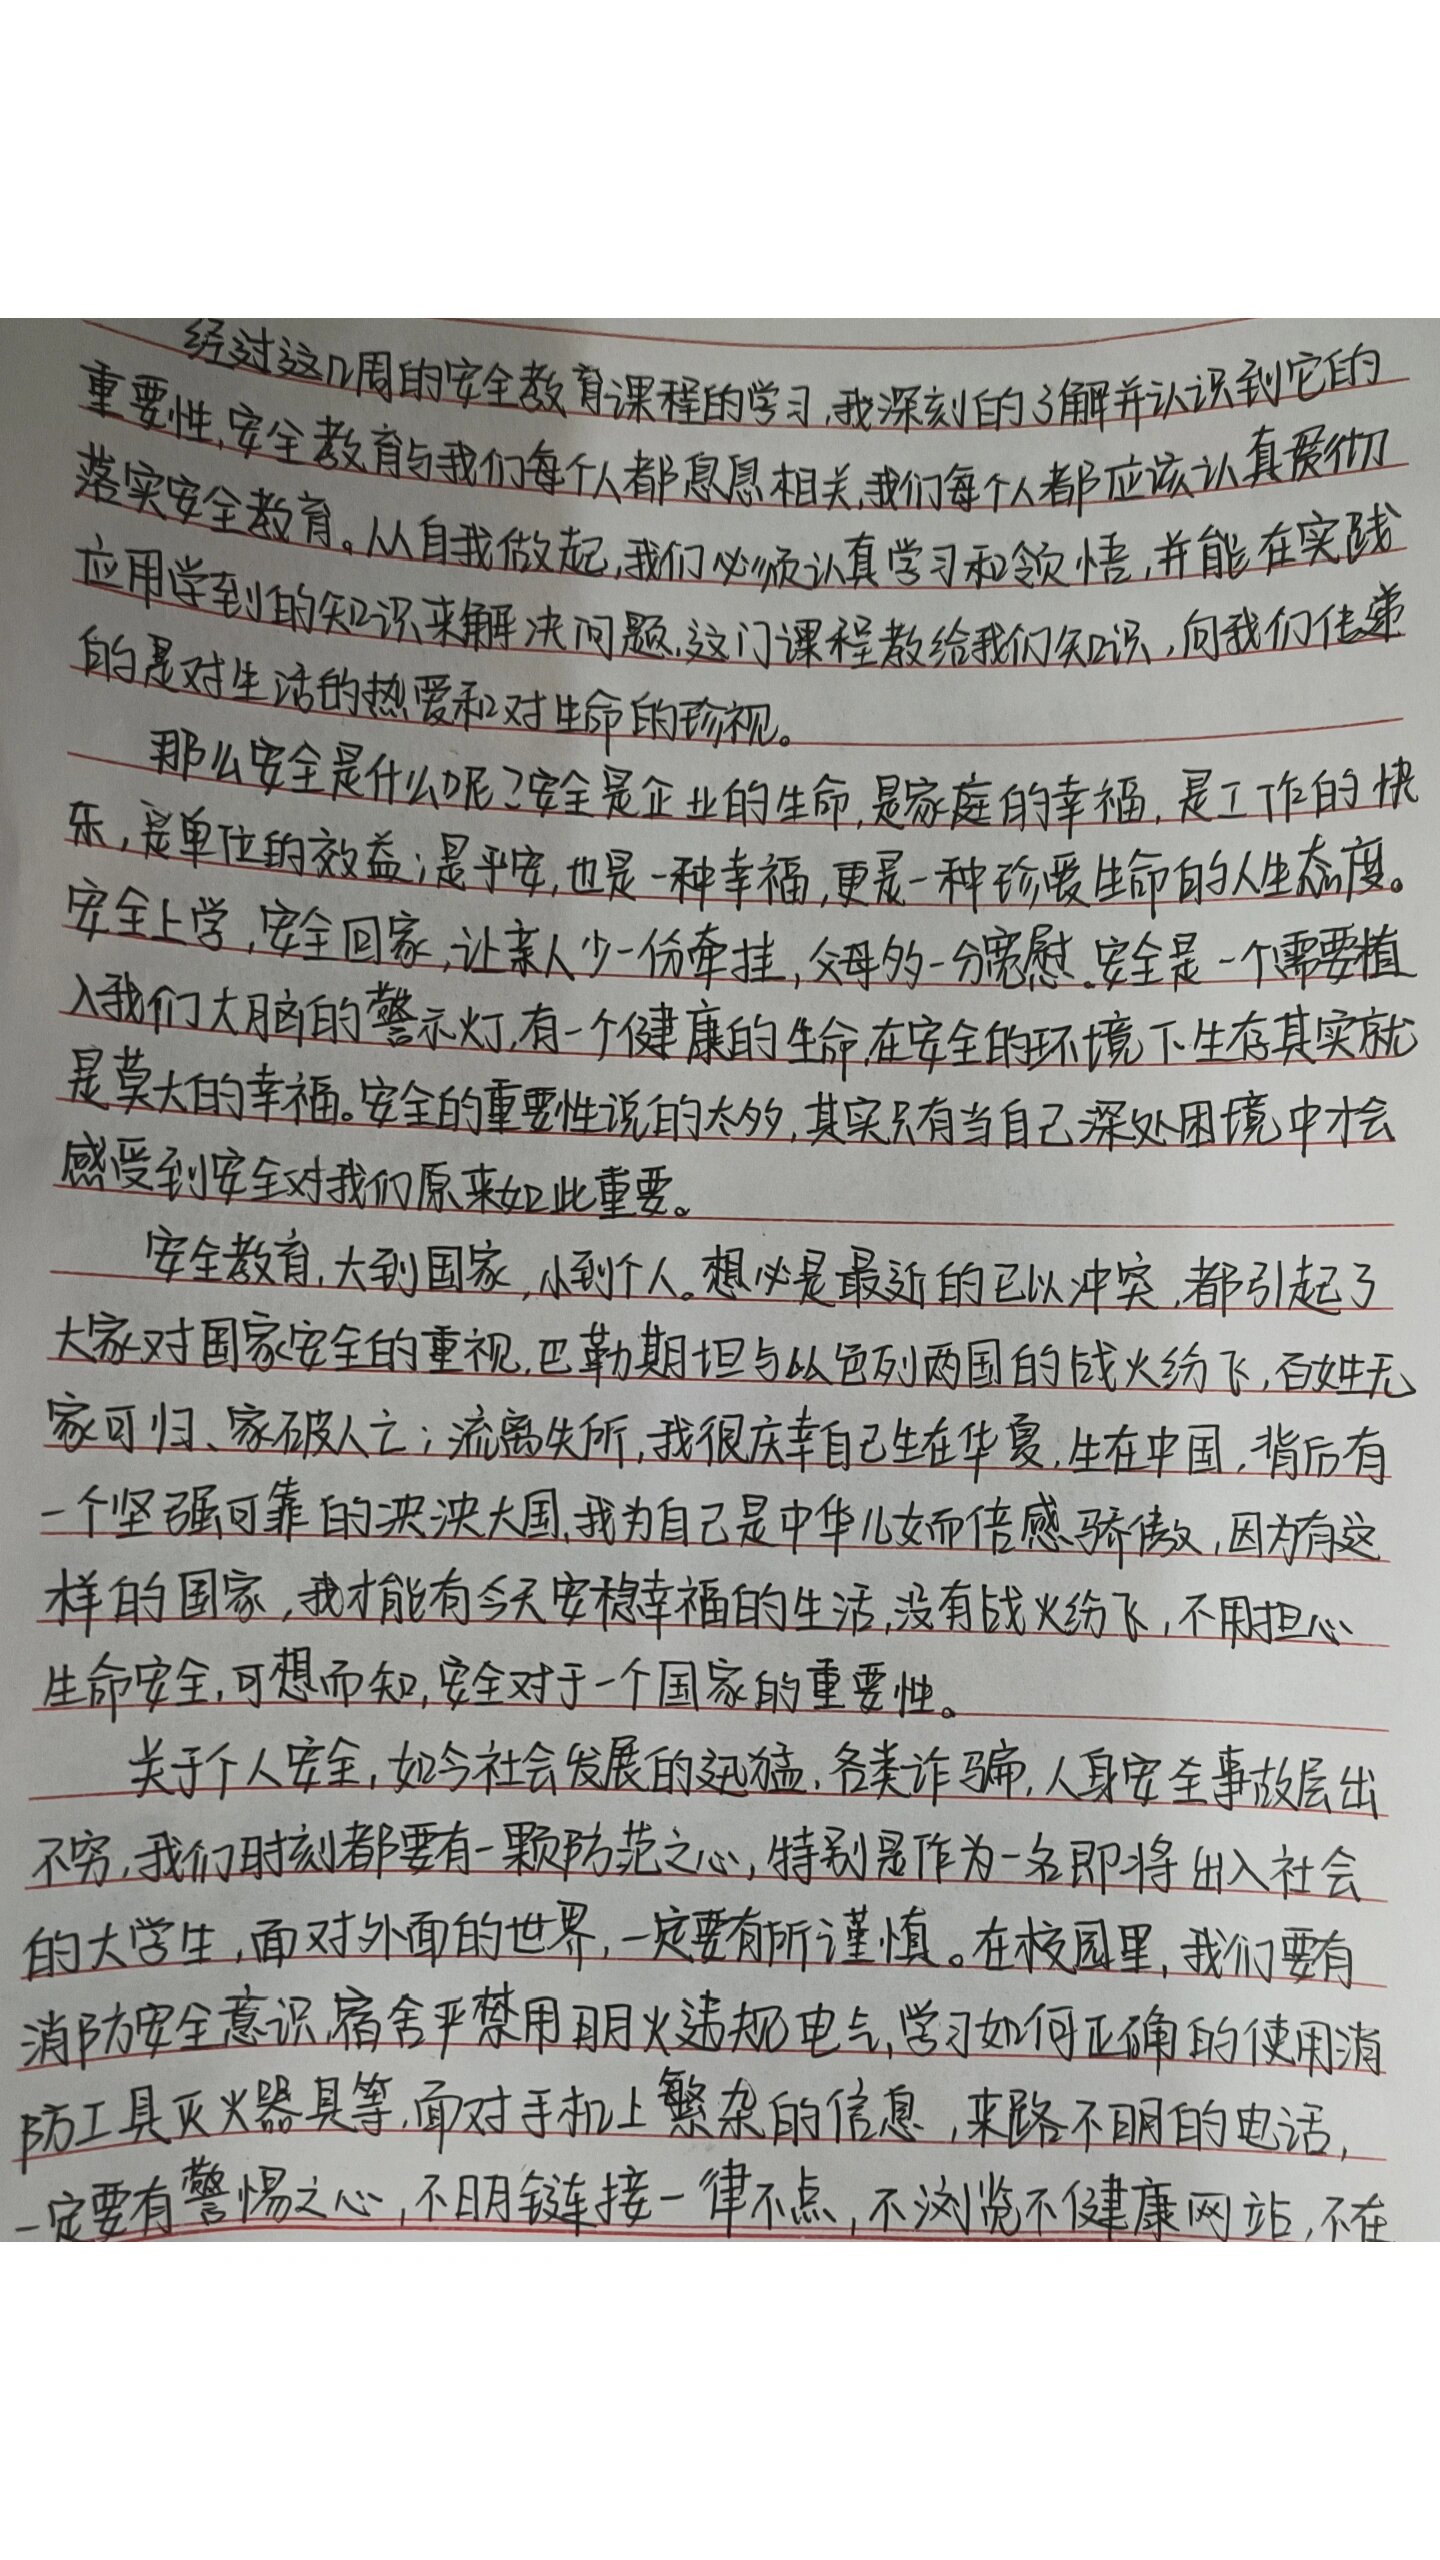 经过这几周的安全教育课程的学习,我深刻的了解并认识到它的
重要性,安全教育与我们每个人都息息相关,我们每个人都应该认真贯彻
落实安全教育。从自我做起,我们必须认真学习和领悟,并能在实践
应用学到的知识来解决问题,这门课程教给我们知识,向我们传递
的是对生活的热爱和对生命的珍视。
那么安全是什么呢?安全是企业的生命,是家庭的幸福,是工作的快
乐,是单位的效益;是平安,也是一种幸福,更是一种珍爱生命的人生态度。
安全上学,安全回家,让亲人少一份牵挂,父母多一分宽慰。安全是一个需要植
入我们大脑的警示灯,有一个健康的生命,在安全的环境下生存其实就
是莫大的幸福。安全的重要性说的太多,其实只有当自己深处困境中才会
感受到安全对我们原来如此重要。
安全教育,大到国家,小到个人。想必是最近的巴以冲突,都引起了
大家对国家安全的重视,巴勒斯坦与以色列两国的战火纷飞,百姓无
家可归、家破人亡;流离失所,我很庆幸自己生在华夏,生在中国,背后有
一个坚强可靠的泱泱大国,我为自己是中华儿女而倍感骄傲,因为有这
样的国家,我才能有今天安稳幸福的生活,没有战火纷飞,不用担心
生命安全,可想而知,安全对于一个国家的重要性。
关于个人安全,如今社会发展的迅猛,各类诈骗,人身安全事故层出
不穷,我们时刻都要有一颗防范之心,特别是作为一名即将出入社会
的大学生,面对外面的世界,一定要有所谨慎。在校园里,我们要有
消防安全意识,宿舍严禁用明火违规电气,学习如何正确的使用消
防工具灭火器具等,面对手机上繁杂的信息,来路不明的电话,
一定要有警惕之心,不明链接一律不点,不浏览不健康网站,不在